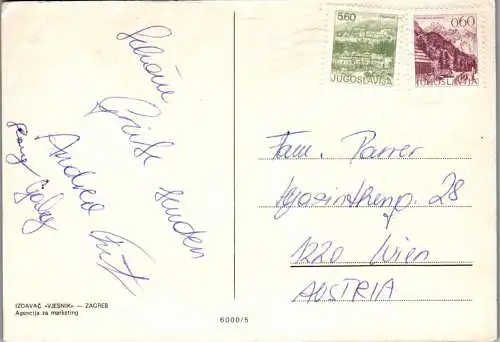 Schöne
Grüße senden
Andrea
Fam. Parrer
28
1220 Wien
AUSTRIA
5.60
JUGOSLAVIJA
0.60
JUGOSLAVIJA
IZDAVAČ «VJESNIK» — ZAGREB
Agencija za marketing
6000/5